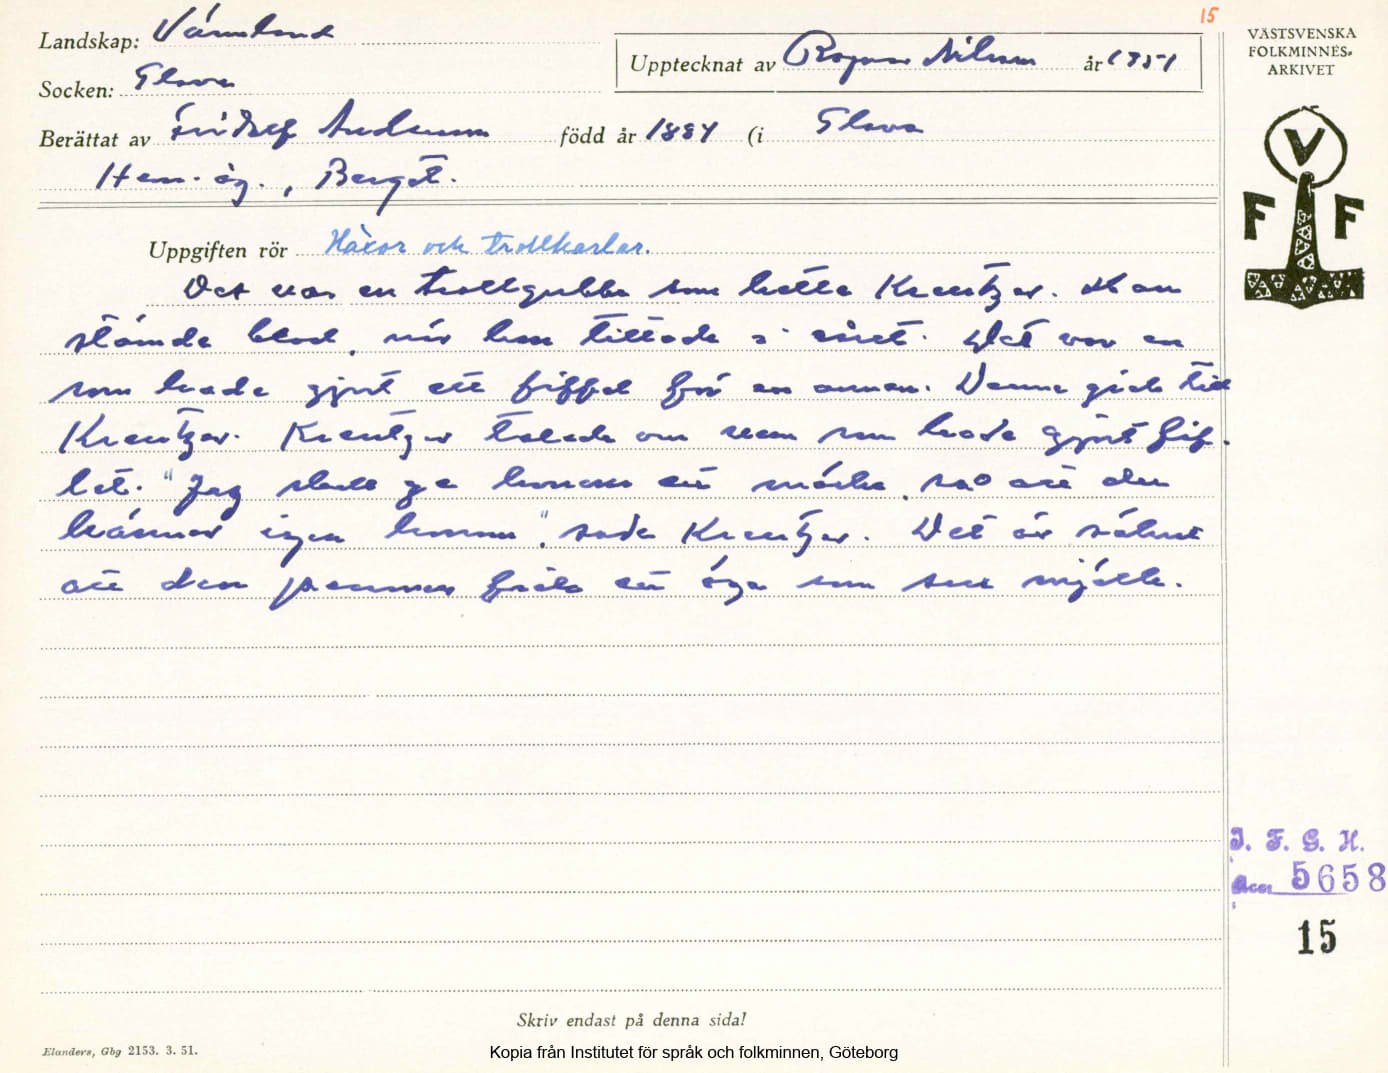 15
Landskap: Värmland
Upptecknat av Ragnar Nilsson år 1951
Socken: Glava
Berättat av Fridolf Andersson född år 1884 (i Glava
Hem. äg., Berget.
Uppgiften rör Häxor och trollkarlar.
Det var en trollgubbe som hette Kreutzer. Han
stämde blod, när han tittade i såret. Det var en
som hade gjort ett fiffel för en annan. Denne gick till
Kreutzer. Kreutzer talade om vem som hade gjort fif-
let. "Jag skall ge honom ett märke, så att du
känner igen honom", sade Kreutzer. Det är säkert
att den personen fick ett öga som
Skriv endast på denna sida!
Elanders, Gbg 2153. 3. 51.
Kopia från Institutet för språk och folkminnen, Göteborg
VÄSTSVENSKA
FOLKMINNES-
ARKIVET
V
F F
I. F. G. H.
Acc. 5658
15